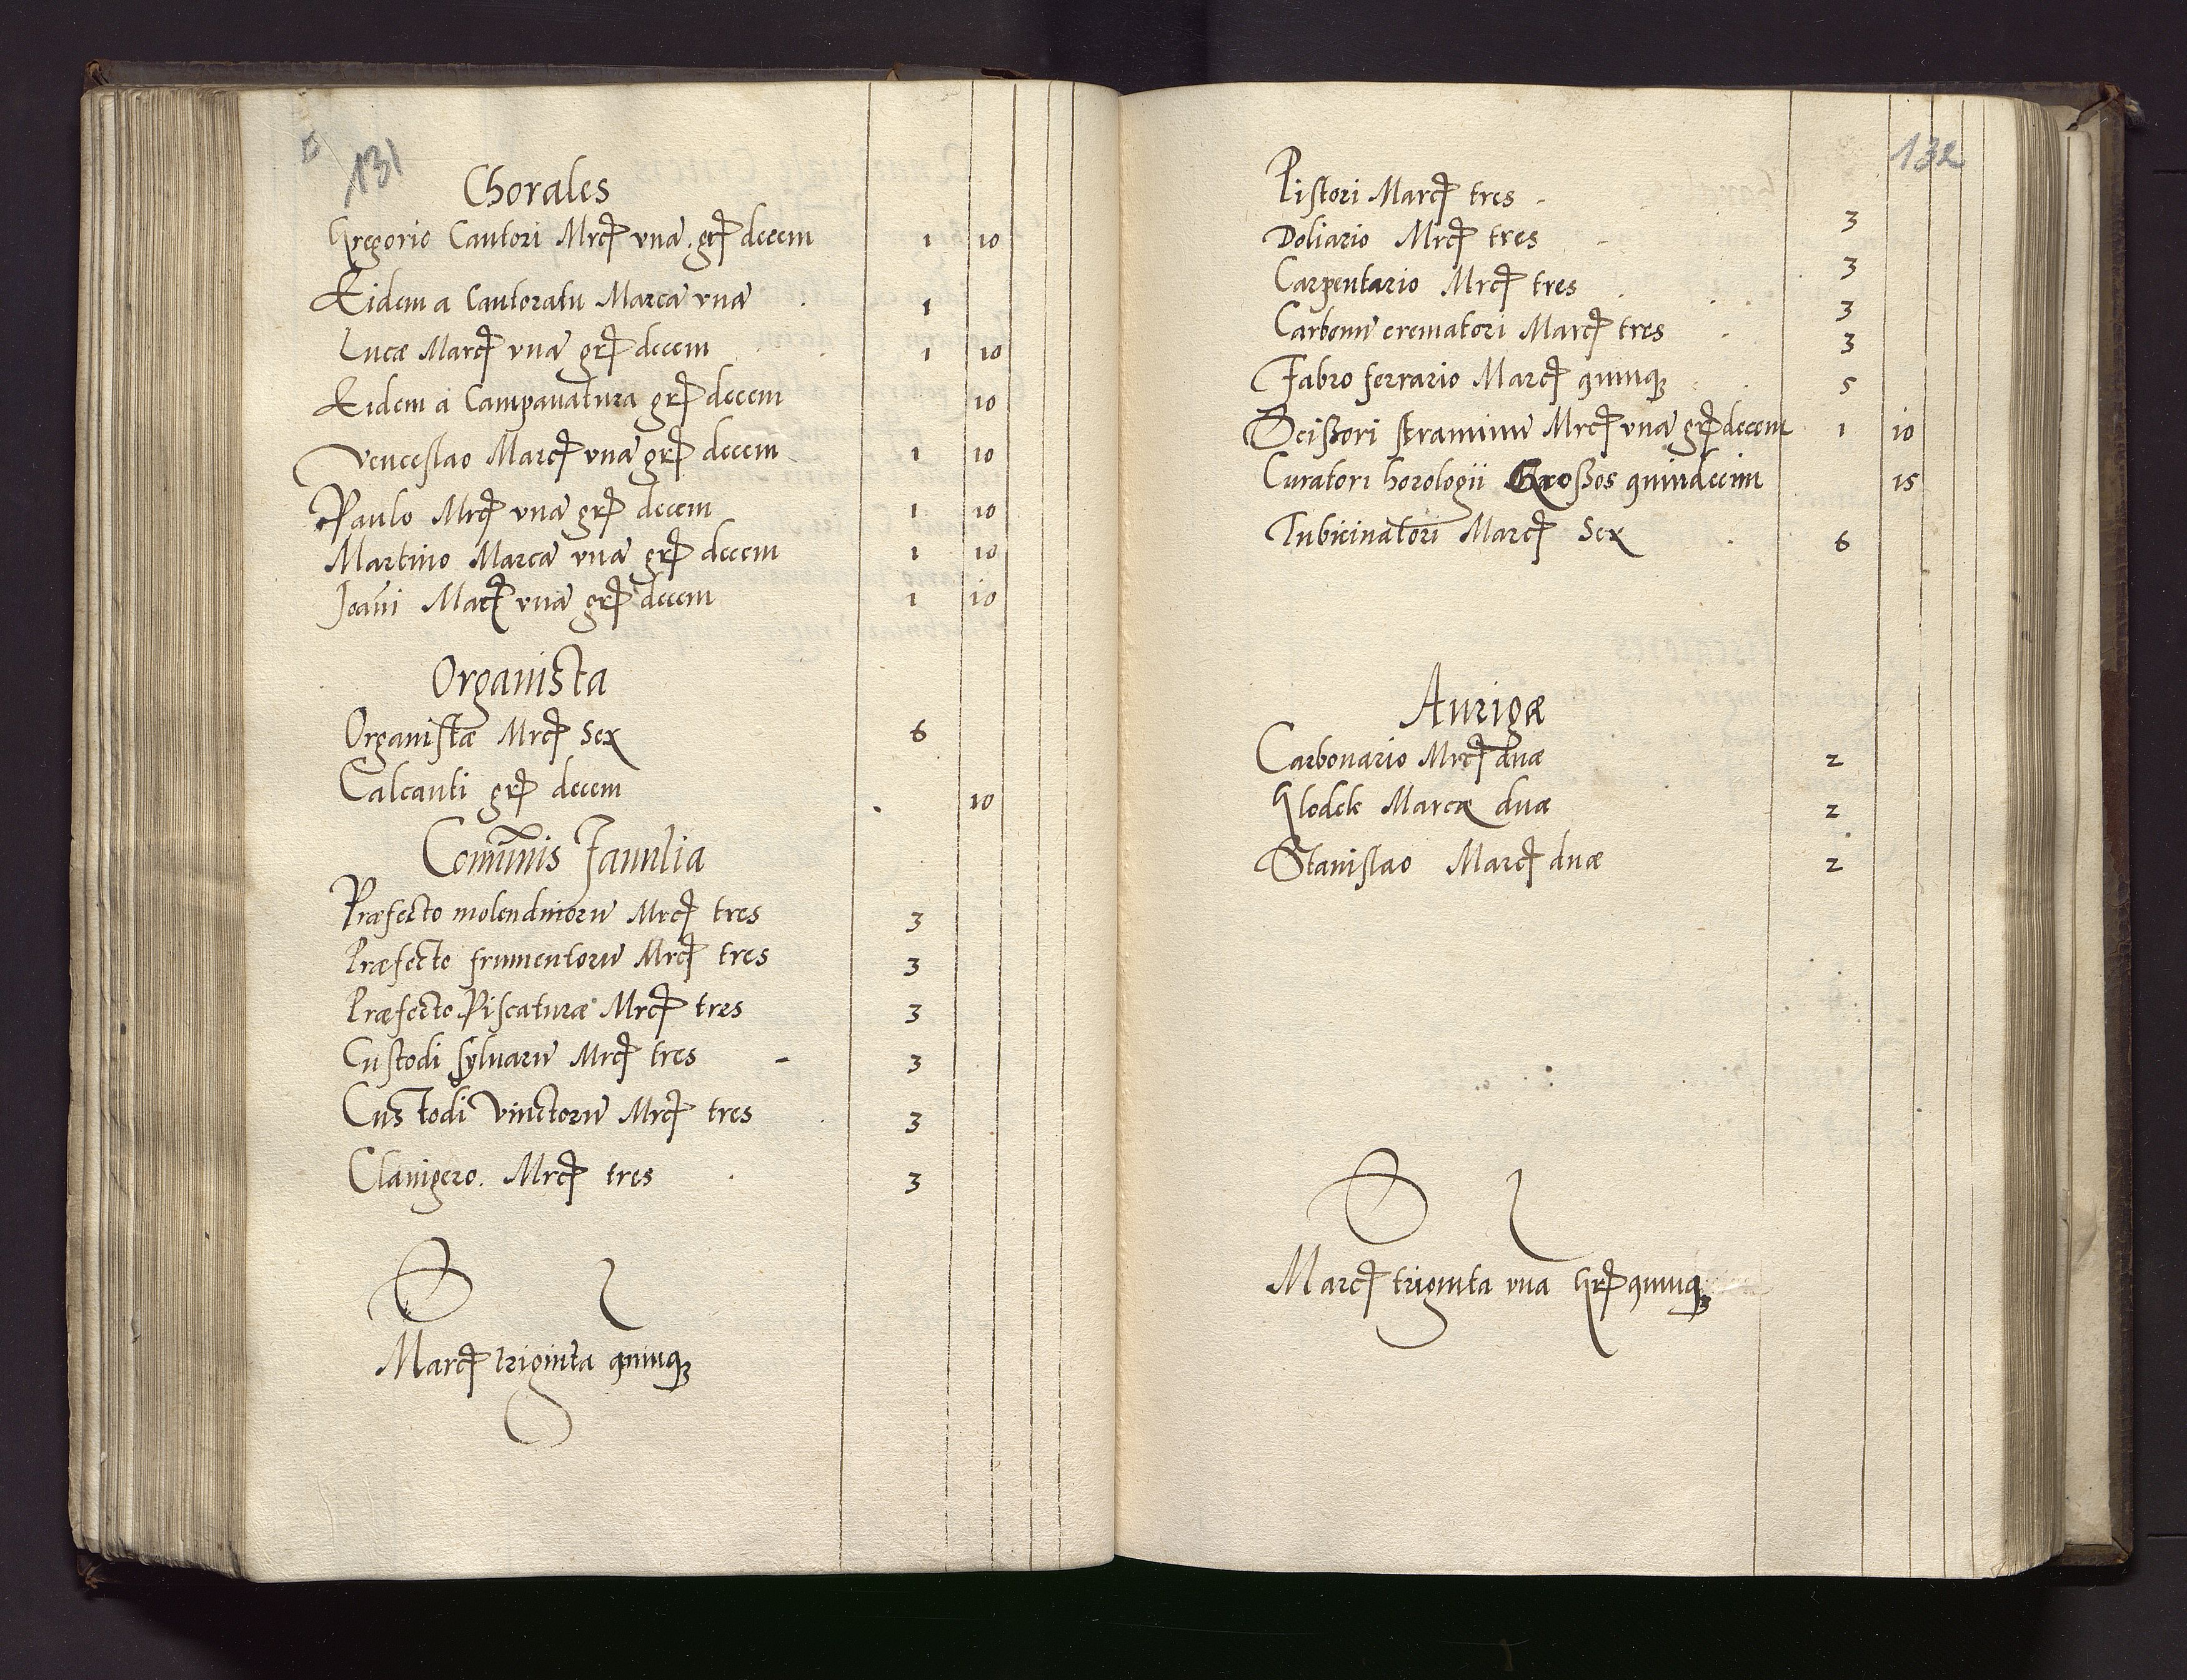 131
Chorales
Gregorio Cantori Mrcę vnā grę decem 1 10
Eidem a Cantoratu Marcā vnā 1
Lucæ Marcę vnā grę decem 1 10
Eidem a Campanatura grę decem 10
Venceslao Marcę vnā grę decem 1 10
Paulo Mrcę vnā grę decem 1 10
Martino Marcā vnā grę decem 1 10
Joāni Marcę vnā grę decem 1 10
Organista
Organistæ Mrcę Sex 6
Calcanti grę decem 10
Com̄unis Familia
Præfecto molendinorū Mrcę tres 3
Præfecto frumentorū Mrcę tres 3
Præfecto Piscaturæ Mrcę tres 3
Custodi sylvarū Mrcę tres - 3
Custodi Vinctorū Mrcę tres 3
Clavigero. Mrcę tres 3
Marcę triginta quinqȝ
132
Pistori Marcę tres - 3
Doliario Mrcę tres - 3
Carpentario Mrcę tres 3
Carbonū crematori Marcę tres 3
Fabro ferrario Marcę quinqȝ 5
Scißori straminū Mrcę vnā grę decem 1 10
Curatori horologii Großos quindecim 15
Tubicinatori Marcę Sex 6
Aurigæ
Carbonario Mrcę duæ 2
Glodek Marcæ duæ 2
Stanislao Marcę duæ 2
Marcę triginta vna Grę quinqȝ